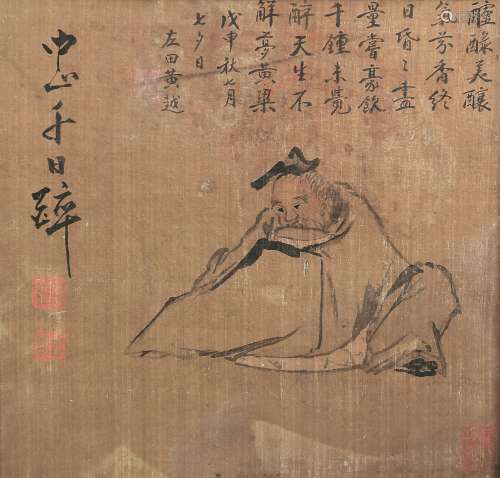 醽醁美釀
芬香終
日昏〻盡
量嘗豪飲
千鍾未覺
醉天生不
解夢黃粱
戊申秋七月
七夕日
左田黃越
中山千日醉